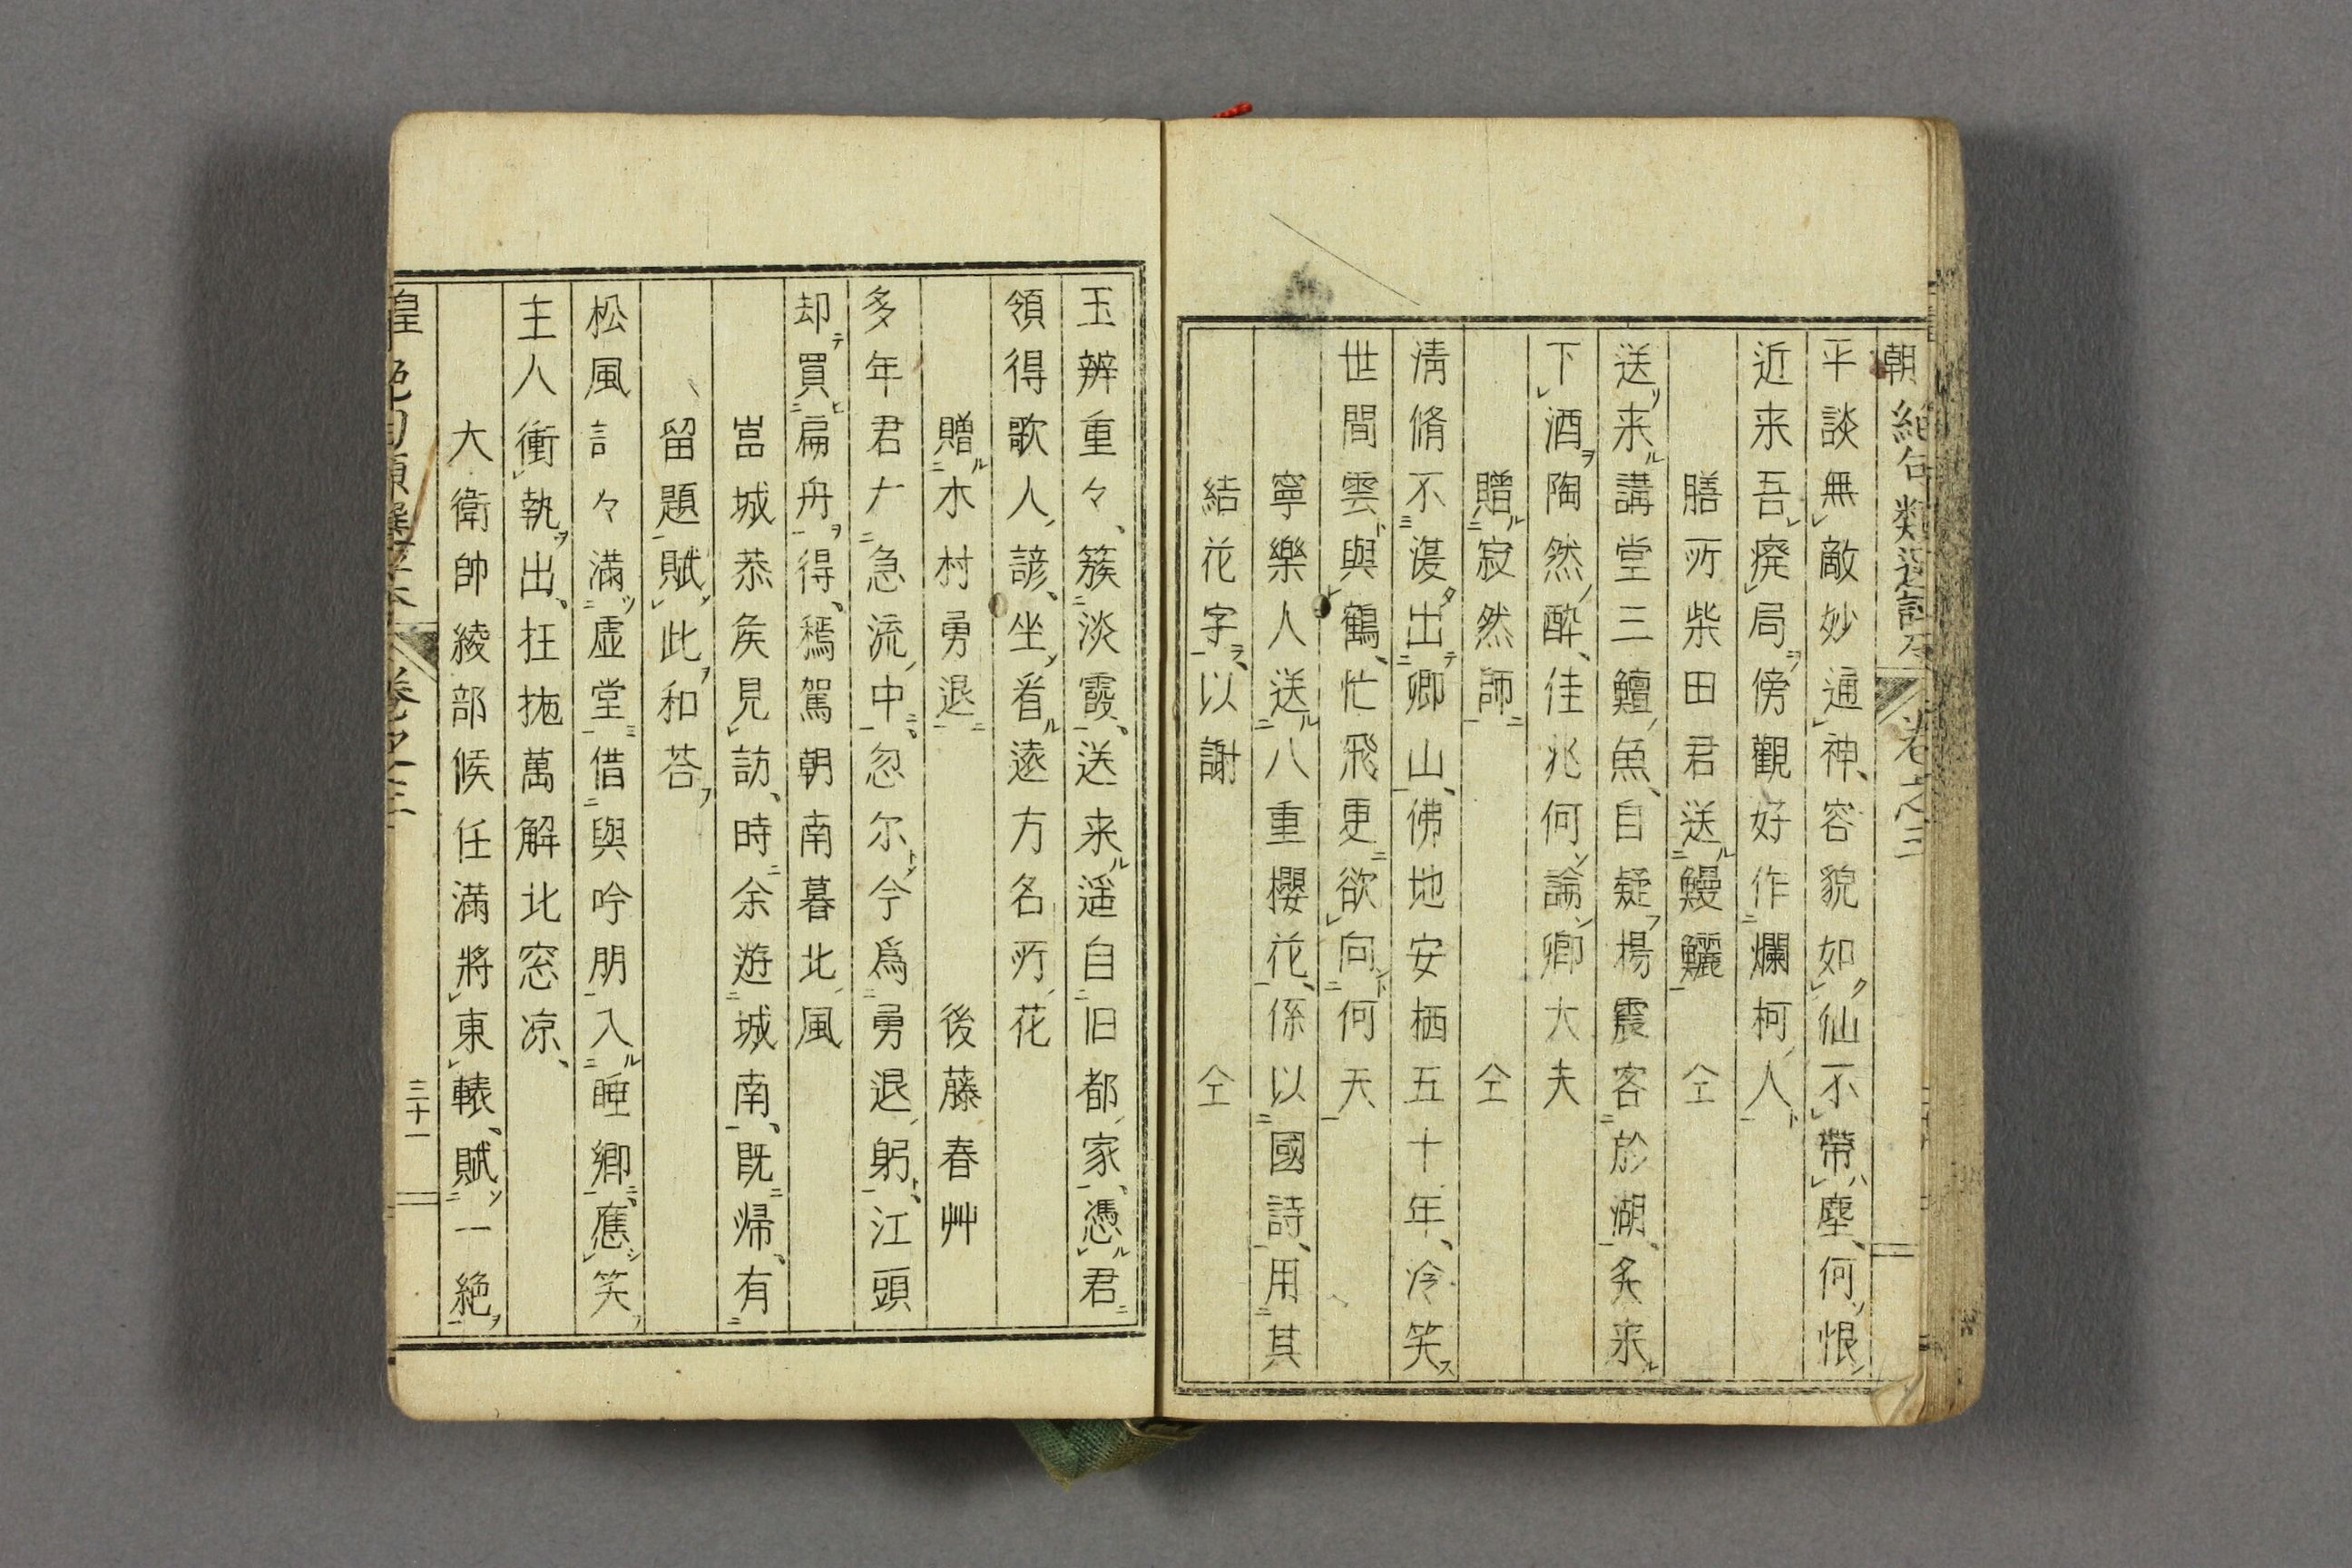 朝絶句類選評本 卷之三
平談無敵妙通神、容貌如仙不帶塵、何恨
近来吾廃局傍觀好作爛柯人
膳所柴田君送鰻鱺 仝
送来講堂三鱣魚、自疑楊震客於湖、炙来
下酒陶然酔、佳兆何論卿大夫
贈寂然師 仝
淸脩不湲出卿山、佛地安栖五十年、冷笑
世間雲與鶴、忙飛更欲向何天
寧樂人送八重櫻花、係以國詩、用其
結花字、以謝 仝
玉辨重々、簇淡霞、送来遥自旧都家、憑君
領得歌人諺、坐看遠方名所花
贈木村勇退 後藤春艸
多年君在急流中、忽尓今爲勇退躬、江頭
却買扁舟得、穩駕朝南暮北風
岧城恭矦見訪、時余遊城南、既帰、有
留題賦此和荅
松風訁々満虚堂借與吟朋入睡鄕、應笑
主人衝執出、抂抛萬解北窓凉、
大衛帥綾部候任満將東轅、賦一絶
皇 絶句類選評本 卷之三
三十一